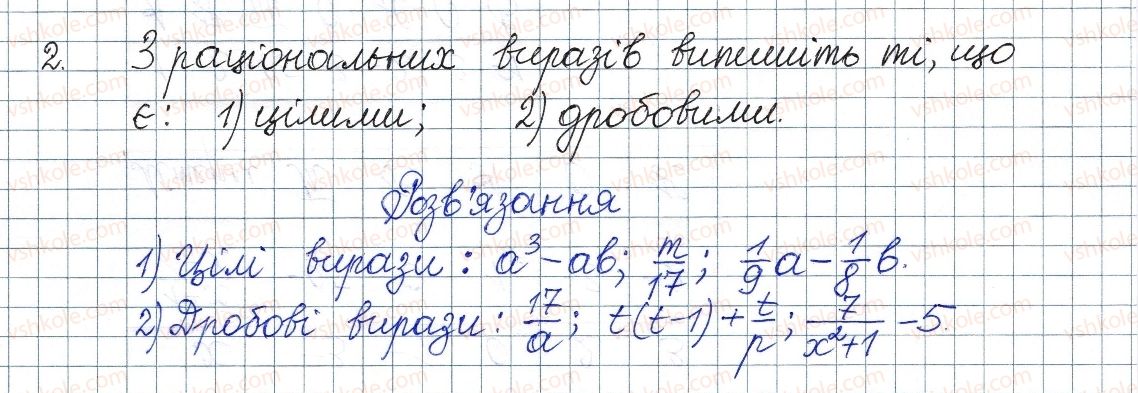 2. З раціональних виразів випишіть ті, що
є: 1) цілими; 2) дробовими.
Розв'язання
1) Цілі вирази: a³-ab; m/17; 1/9 a - 1/8 b.
2) Дробові вирази: 17/a; t(t-1)+t/p; 7/(x²+1) -5.